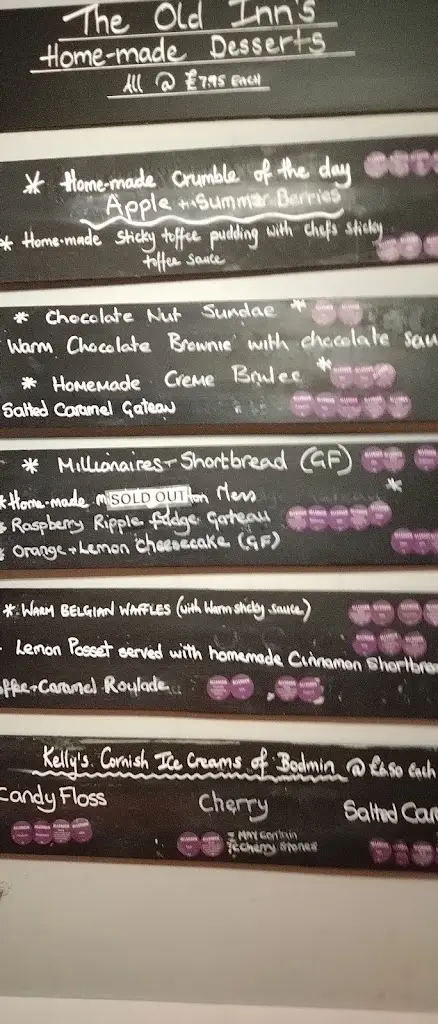 The Old Inn's
Home-made Desserts
All @ £7.95 Each
* Home-made Crumble of the day
Apple + Summer Berries
* Home-made Sticky toffee pudding with chefs sticky
toffee sauce
* Chocolate Nut Sundae *
Warm Chocolate Brownie with chocolate sau
* Homemade Creme Brulee *
Salted Caramel Gateau
* Millionaires Shortbread (GF)
* Home-made m SOLD OUT ton Mess *
* Raspberry Ripple fudge Gateau
* Orange + Lemon Cheesecake (GF)
* Warm Belgian Waffles (with warm sticky sauce)
Lemon Posset served with homemade Cinnamon Shortbrea
offee + Caramel Roulade
Kelly's Cornish Ice Creams of Bodmin @ £6.50 Each
Candy Floss
Cherry
Salted Car
MAY Contain
Cherry Stones